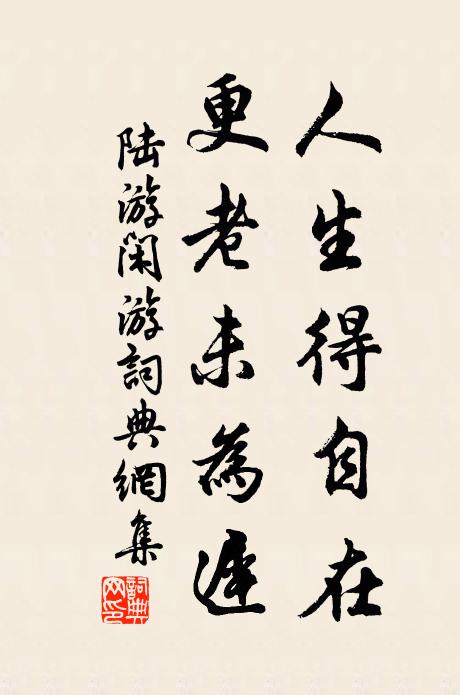 人生得自在
更老未為遲
陸游閑游詞典網集
詞典网印